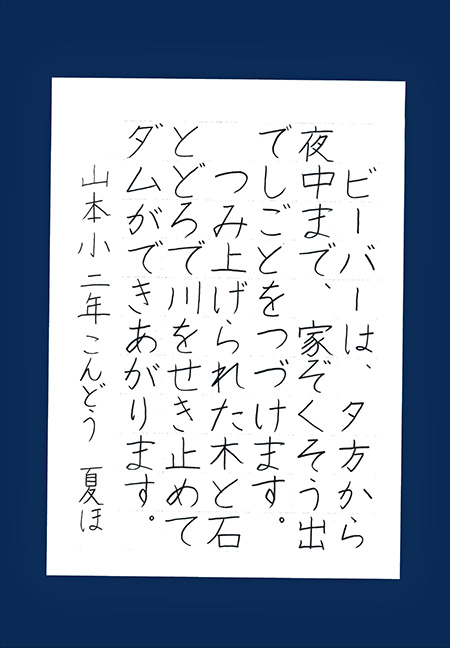 ビーバーは、夕方から
夜中まで、家ぞくそう出
でしごとをつづけます。
つみ上げられた木と石
とどろで川をせき止めて
ダムができあがります。
山本小二年こんどう 夏ほ